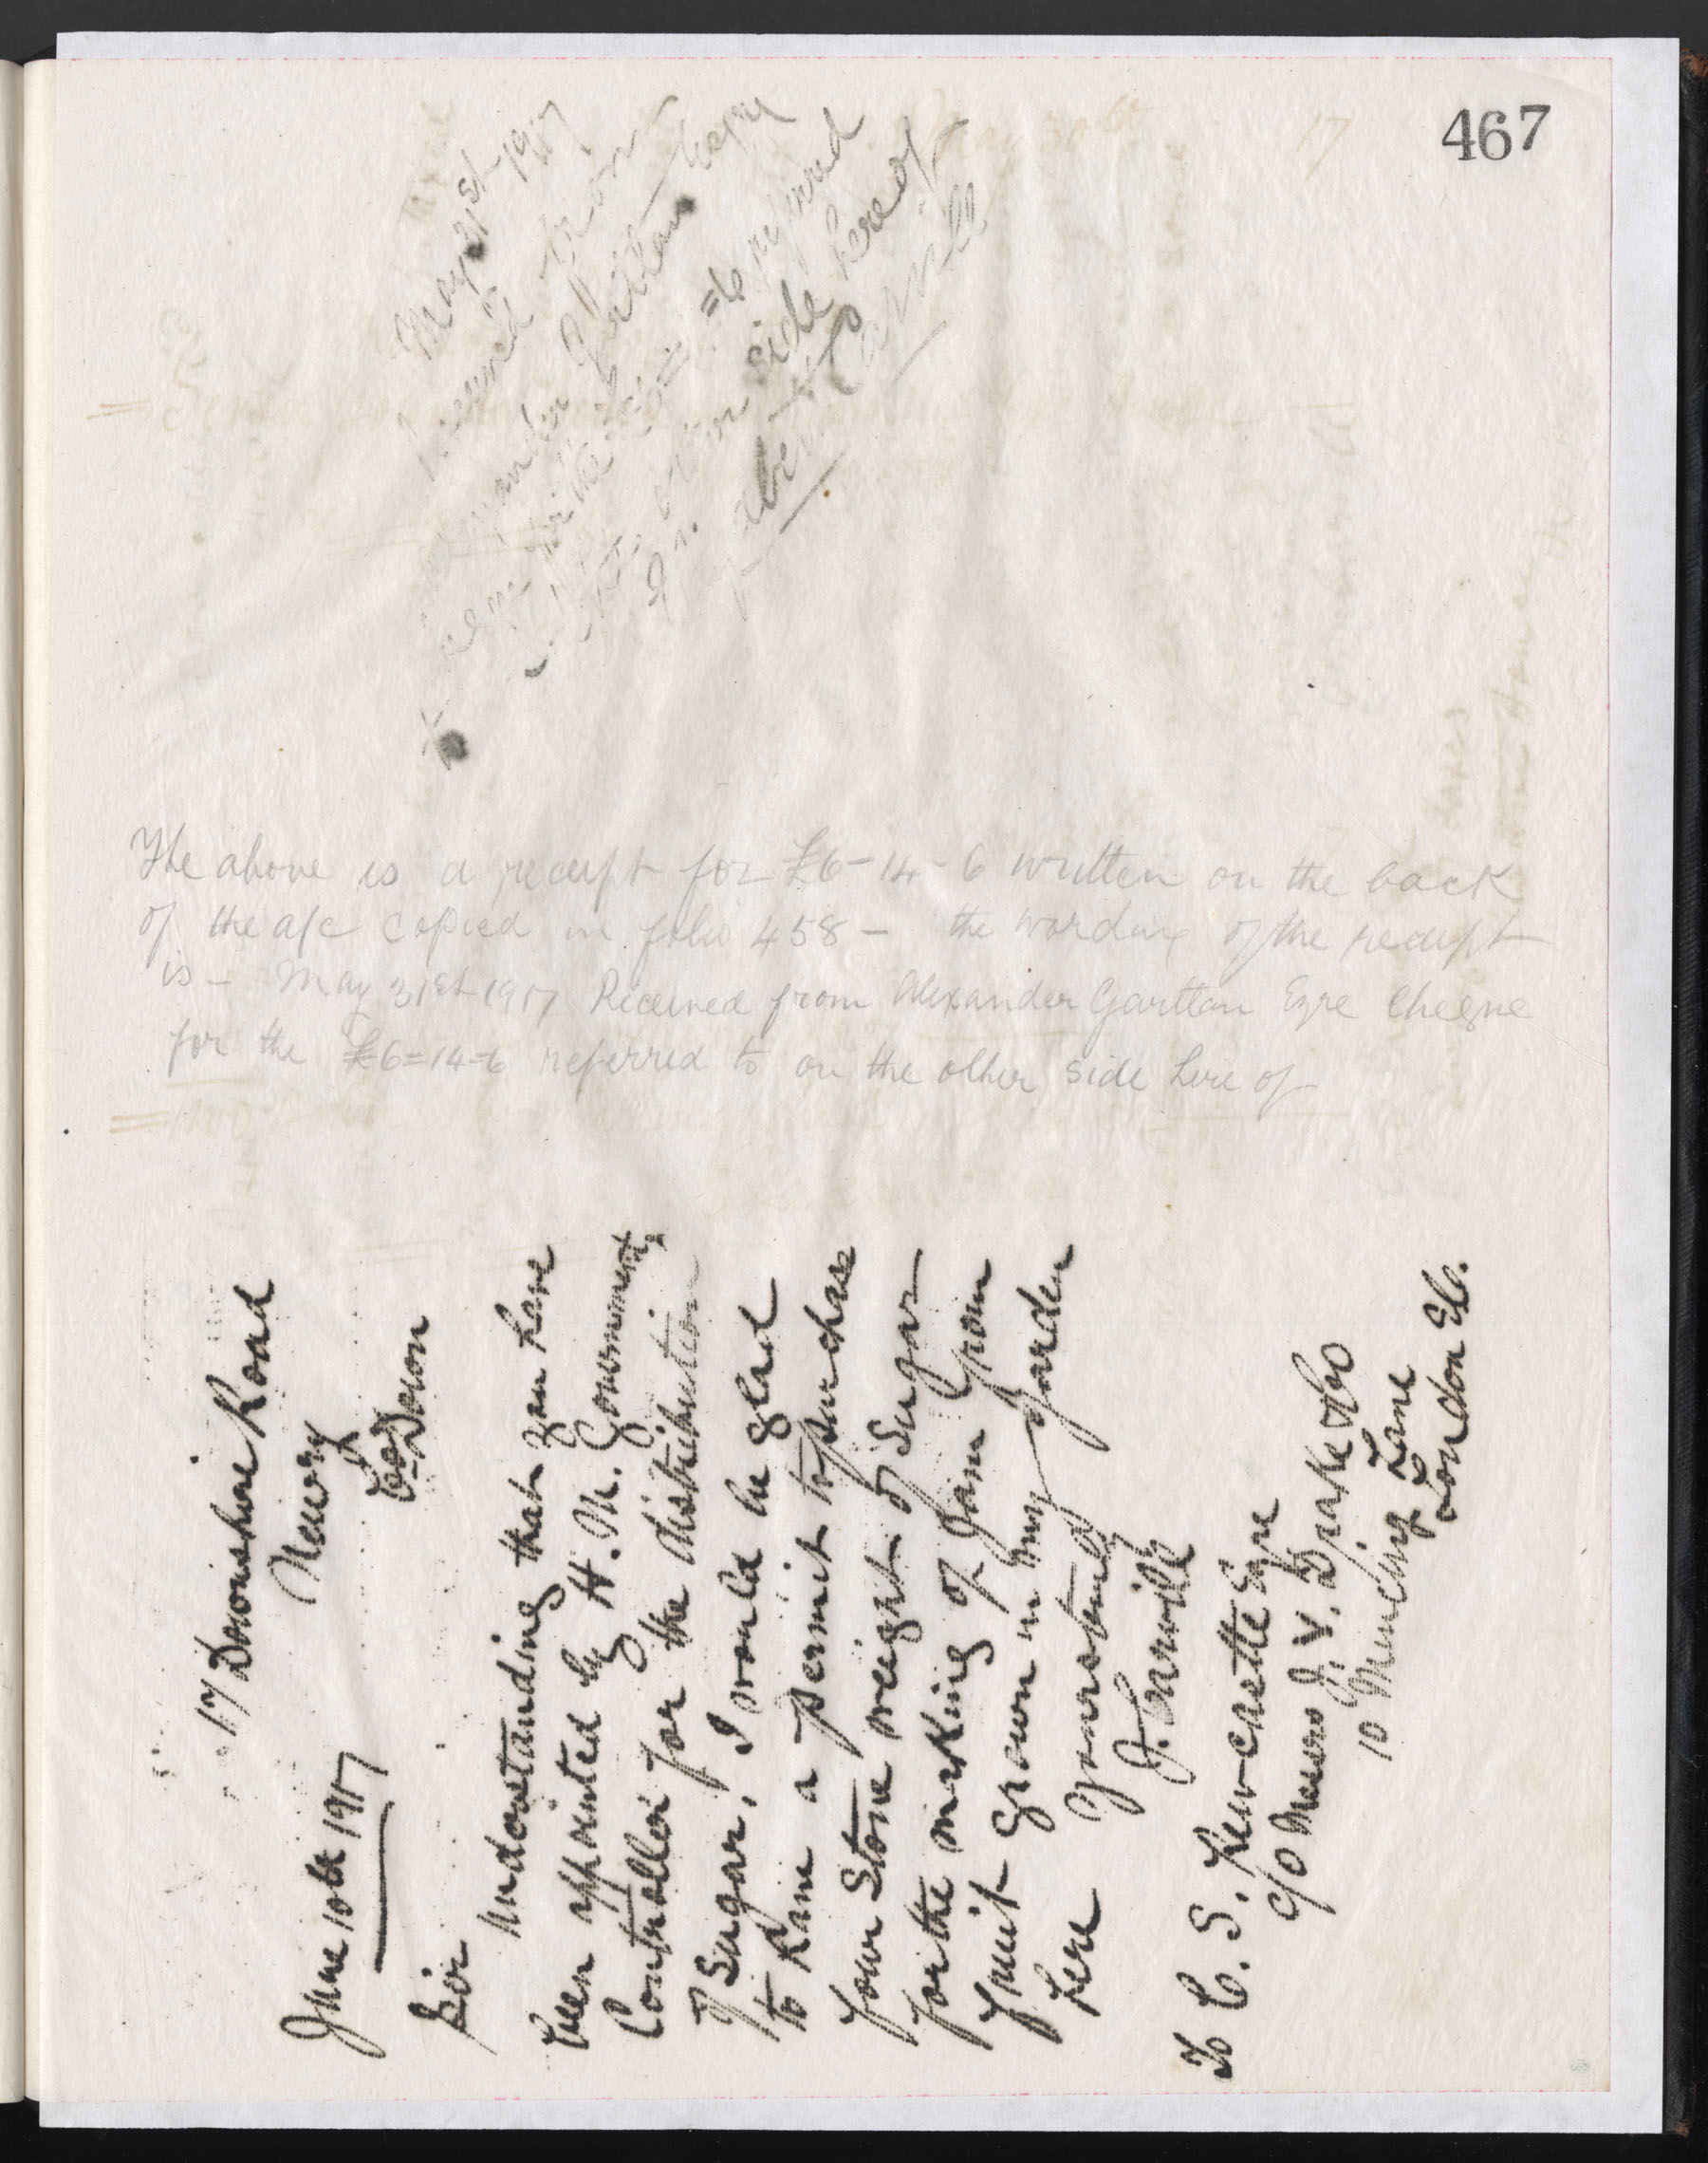 467
May 31st 1917
Received from
Alexander Gartlan Eyre
Cheque for the £6=14=6 referred
to on other side hereof
J Carvill
The above is a receipt for £6-14-6 written on the back
of the a/c copied in folio 458 - the wording of the receipt
is - May 31st 1917 Received from Alexander Gartlan Esqre Cheque
for the £6=14=6 referred to on the other side here of
17 Downshire Road
Newry
Co Down
June 10th 1917
Sir
Understanding that you have
been appointed by H. M. Government
Controller for the distribution
of Sugar, I would be glad
to have a permit to purchase
four Stone weight of Sugar
for the making of Jam from
fruit grown in my garden
here Yours truly
J. Carvill
To C. S. Rewcastle Eqre
c/o Messrs J. V. Drake & Co
10 Mincing Lane
London Ec.